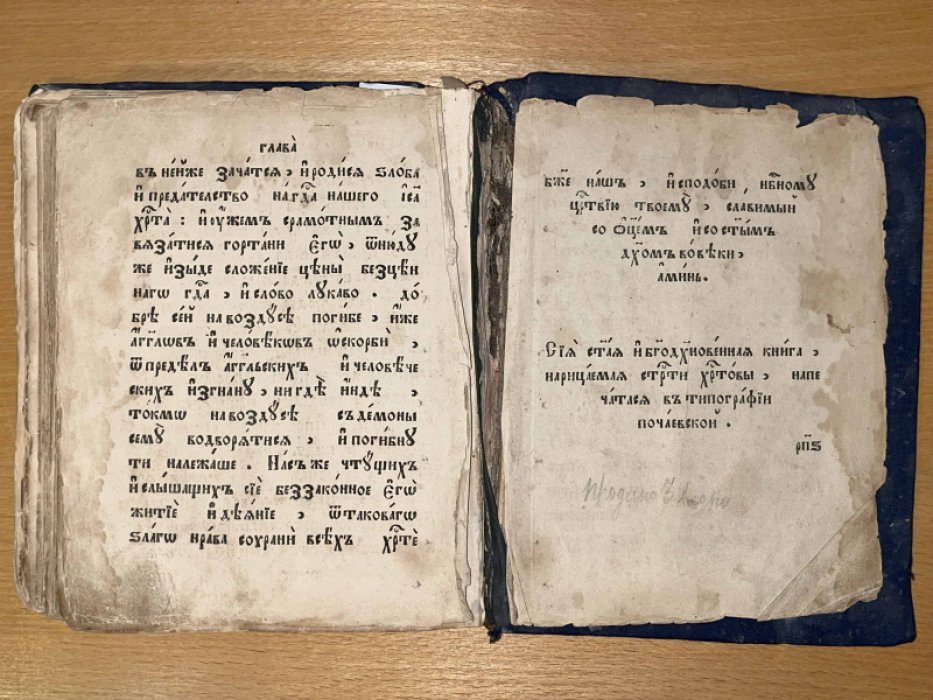 глава̀
въ не́йже зача́тся , и҆роди́ся ѕло́ба
и҆преда́телство на́гдⷭ҇а на́шего і҆с҃а
хрⷭ҇та̀ : и҆оу҆́жемъ срамо́тнымъ за
вѧза́тися горта́ни є҆гѡ̀ , ѿню́ду
же и҆зы́де сложе́нїе цѣны̀ безцѣ́н
нагѡ гдⷭ҇а , и҆сло́во лука́во . до́
брѣ се́й навозⸯꙋ́сѣ поги́бе , и҆́же
а҆́гг҃лѡвъ и҆человѣ́кѡвъ ѡ҆скорбѝ ,
ѿпредѣ́лъ а҆́гг҃лскихъ и҆человѣ́че
скихъ и҆згна́нꙋ , нигдѣ̀ и҆́ндѣ ,
то́кмѡ навоздꙋ́сѣ съде́моны
семꙋ̀ водвора́тися , и҆поги́бнꙋ
ти належа́ше . На́съ же чтꙋ́щихъ
и҆слы́шащихъ сїѐ беззако́нное є҆гѡ̀
житїѐ и҆дѣѧ́нїе , ѿтакова́гѡ
ѕла́гѡ нра́ва сохранѝ всѣ́хъ хрⷭ҇тѐ
бж҃е на́шъ , и҆сподо́би нбⷭ҇номꙋ
црⷭ҇твїю твоемꙋ̀ , сла́вимый
со ѻ҆ц҃е́мъ и҆состы҃мъ
дх҃омъ вовѣ́ки ,
а҆ми́нь .
Сїѧ̀ ст҃а́ѧ и҆бг҃одх҃нове́ннаѧ кни́га ,
нарица́емаѧ стрⷭ҇ти хрⷭ҇то́вы , напе
ча́тася въ типогра́фїи
поча́евской .
рп҃ѕ
продано